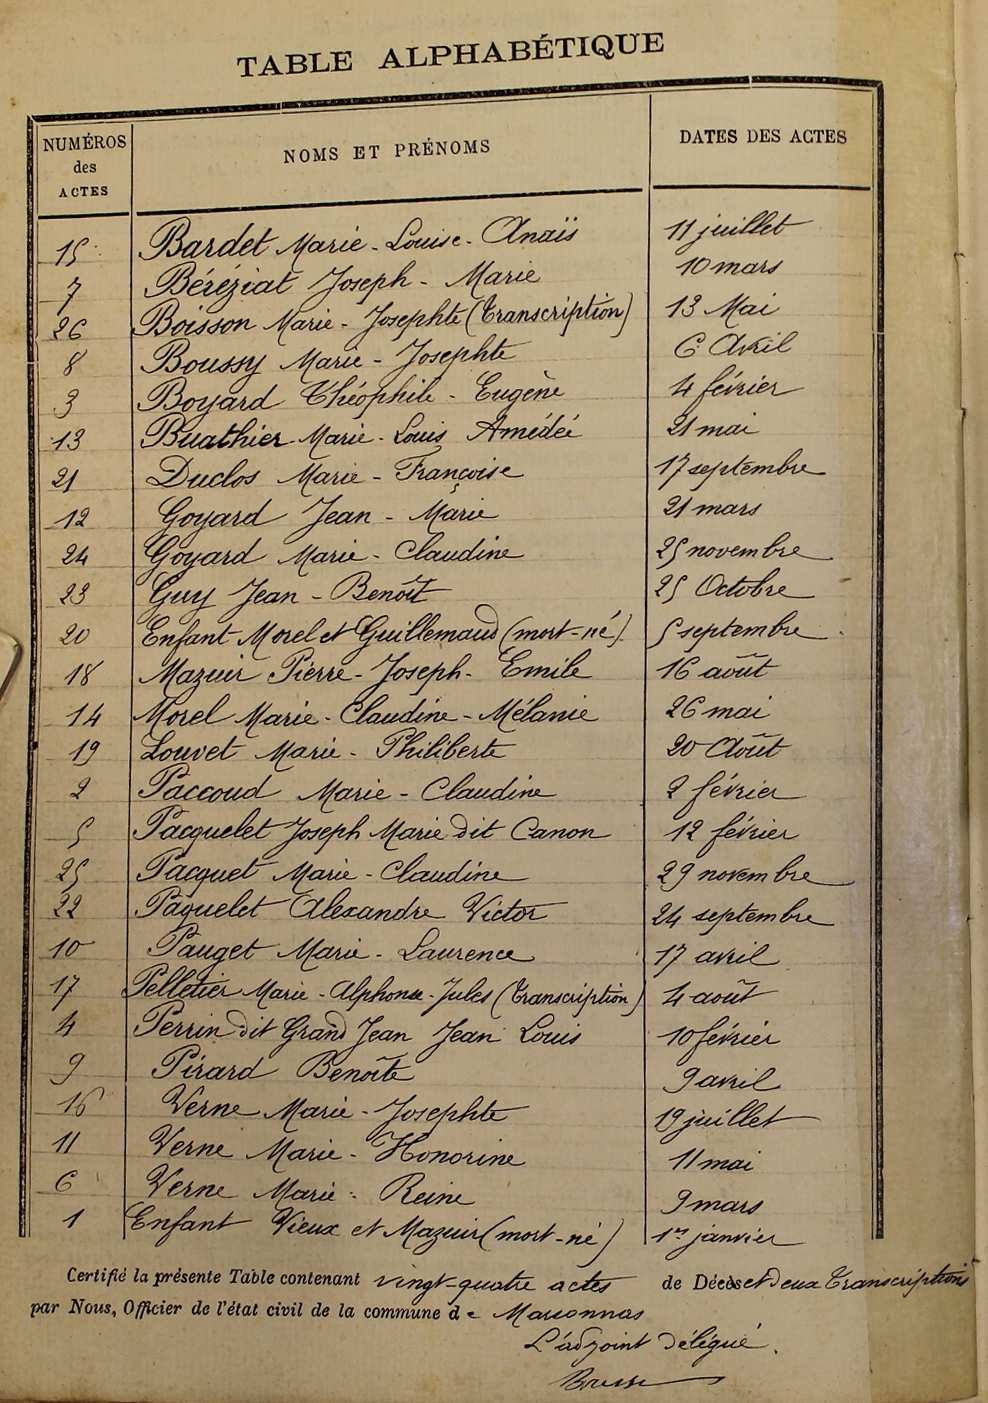 TABLE ALPHABÉTIQUE
NUMÉROS des ACTES NOMS ET PRÉNOMS DATES DES ACTES
15 Bardet Marie-Louise-Anaïs 11 juillet
7 Béréziat Joseph-Marie 10 mars
26 Boisson Marie-Josephte (Transcription) 13 Mai
8 Boussy Marie-Josephte 6 Avril
3 Boyard Théophile-Eugène 4 février
13 Buathier Marie-Louis Amédée 21 mai
21 Duclos Marie-Françoise 17 septembre
12 Goyard Jean-Marie 21 mars
24 Goyard Marie-Claudine 25 novembre
23 Guy Jean-Benoît 25 Octobre
20 Enfant Morel et Guillemaud (mort-né) 5 septembre
18 Mazuir Pierre-Joseph-Emile 16 août
14 Morel Marie-Claudine-Mélanie 26 mai
19 Louvet Marie-Philiberte 20 Août
2 Paccoud Marie-Claudine 2 février
5 Pacquelet Joseph Marie dit Canon 12 février
25 Pacquet Marie-Claudine 29 novembre
22 Paquelet Alexandre Victor 24 septembre
10 Pauget Marie-Laurence 17 avril
17 Pelletier Marie-Alphonse-Jules (Transcription) 4 août
4 Perrin dit Grand Jean Jean Louis 10 février
9 Pirard Benoîte 9 avril
16 Verne Marie-Josephte 19 juillet
11 Verne Marie-Honorine 11 mai
6 Verne Marie-Reine 9 mars
1 Enfant Vieux et Mazuir (mort-né) 1er janvier
Certifié la présente Table contenant vingt-quatre actes de Décès et deux Transcriptions
par Nous, Officier de l'état civil de la commune de Marsonnas
L'adjoint délégué.